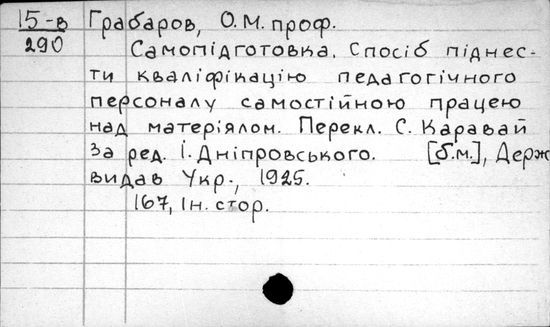 15-в Грабаров, О.М. проф.
290
Самопідготовка. Спосіб піднес-
ти кваліфікацію педагогічного
персоналу самостійною працею
над матеріялом. Перекл. С. Каравай
За ред. І. Дніпровського. [б.м.], Держ
видав Укр., 1925.
167, Ін. стор.